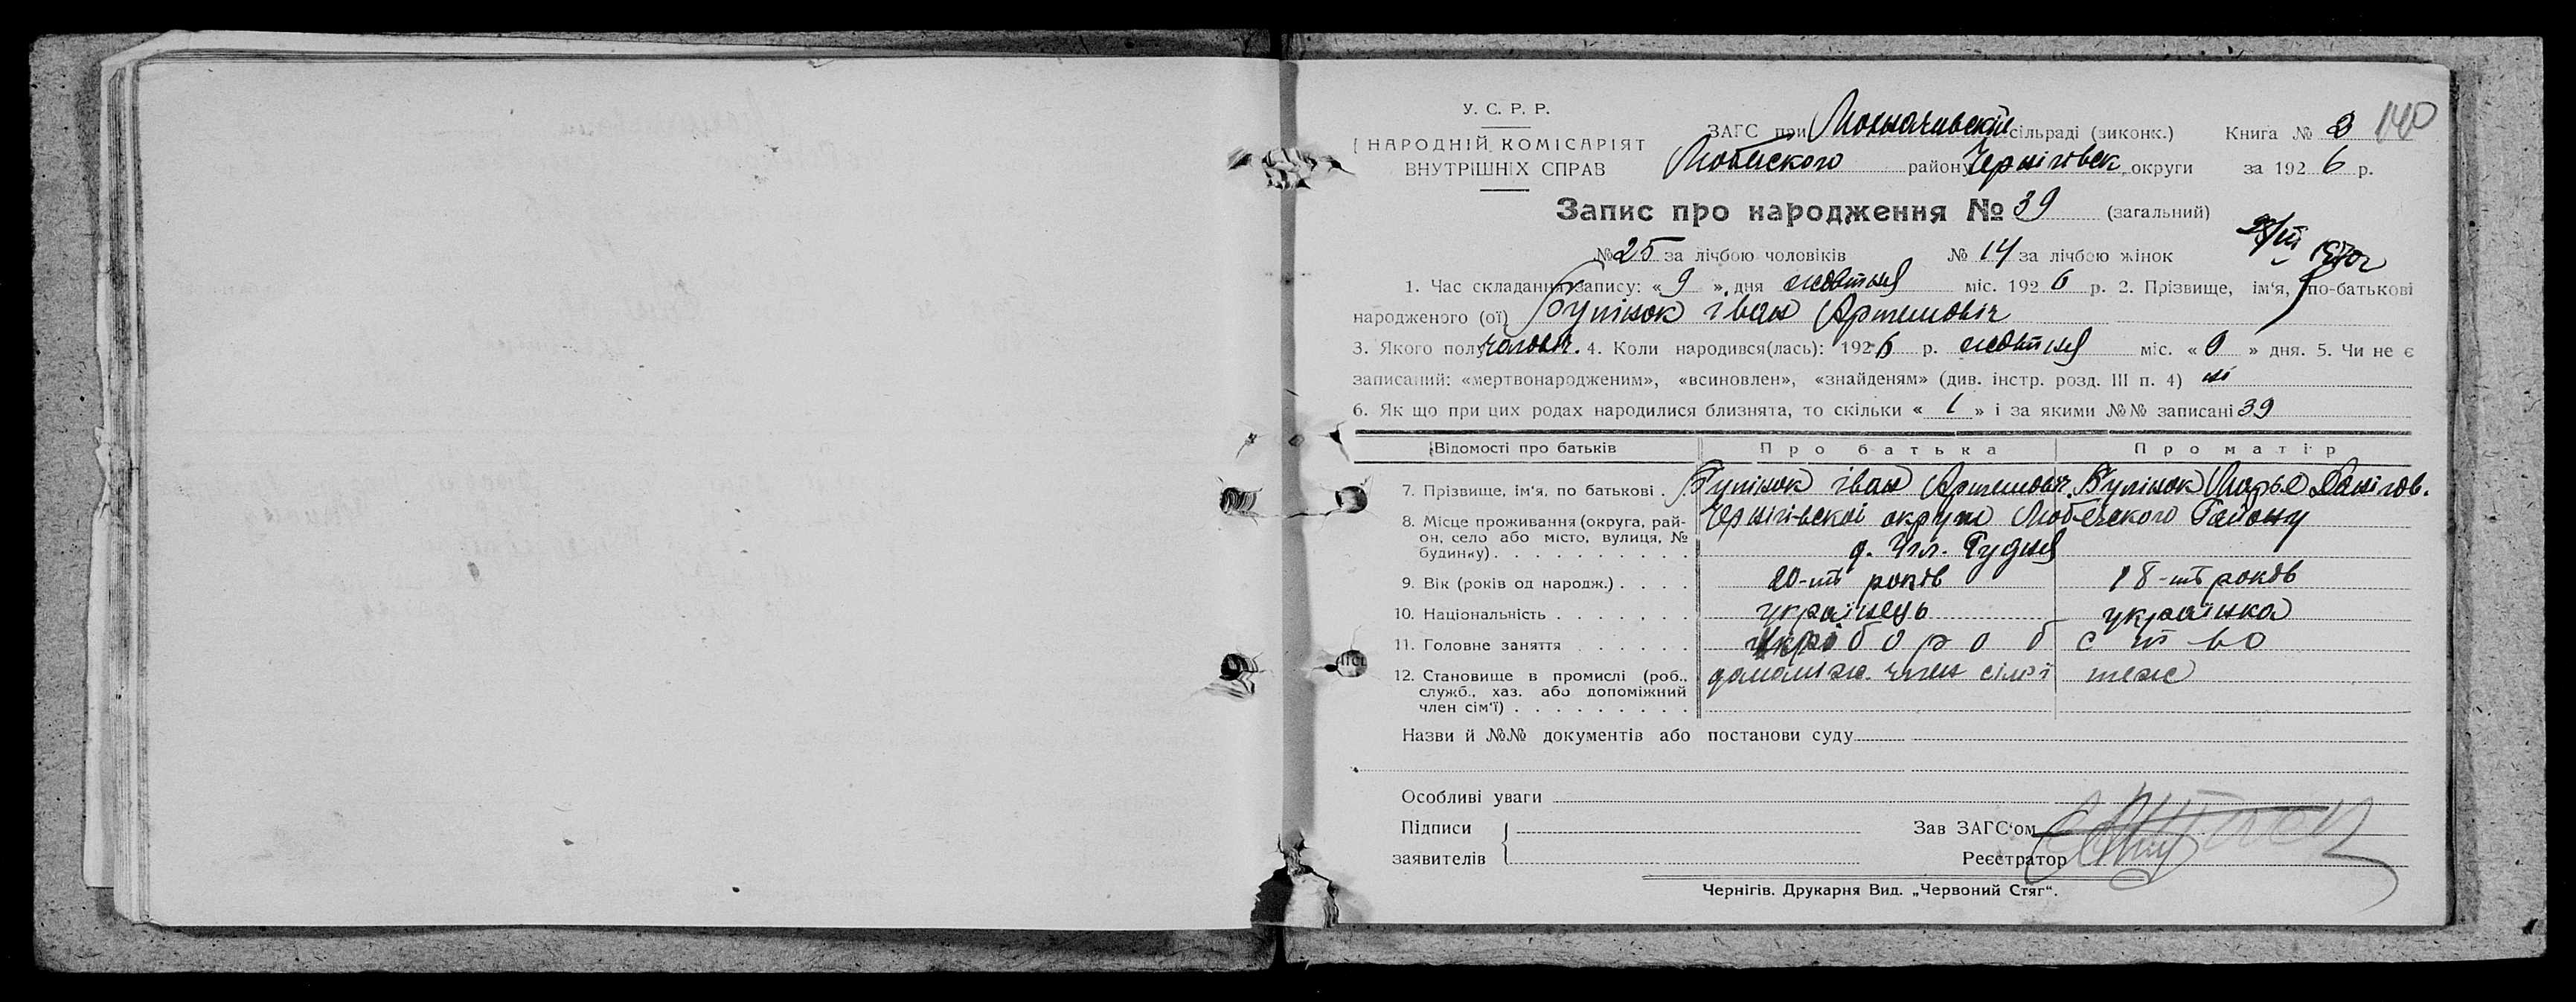 У. С. Р. Р.
НАРОДНІЙ КОМІСАРІЯТ
ВНУТРІШНІХ СПРАВ
ЗАГС при сільраді (виконк.) Книга № 3 140
Любецкого району Чернігівск. округи за 1926 р.
Запис про народження № 39 (загальний)
№ 25 за лічбою чоловіків № 14 за лічбою жінок
1. Час складання запису: « 9 » дня жовтня міс. 1926 р. 2. Прізвище, ім'я, по-батькові
народженого (ої) іван Артемовіч
3. Якого полу чоловіч. 4. Коли народився(лась): 1926 р. жовтня міс. « » дня. 5. Чи не є
записаний: «мертвонародженим», «всиновлен», «знайденям» (див. інстр. розд. III п. 4) ні
6. Як що при цих родах народилися близнята, то скільки « 1 » і за якими №№ записані 39
Відомості про батьків Про батька Про матір
7. Прізвище, ім'я, по батькові . іван Артемович. Марья Даніłов.
8. Місце проживання (округа, рай- Чернігівскоі округи Любецкого Району
он, село або місто, вулиця, №
будинку) . . . . . . . . . . Рудня
9. Вік (років од народж.) . . . . 20-ть років 18-ть років
10. Національність . . . . . . . українець українка
11. Головне заняття . . . . . . хліборобство
12. Становище в промислі (роб., допоміж. член сімї теж
служб., хаз. або допоміжний
член сім'ї) . . . . . . . . .
Назви й №№ документів або постанови суду
Особливі уваги
Підписи
заявителів
Зав ЗАГС'ом
Реєстратор
Чернігів. Друкарня Вид. „Червоний Стяг“.